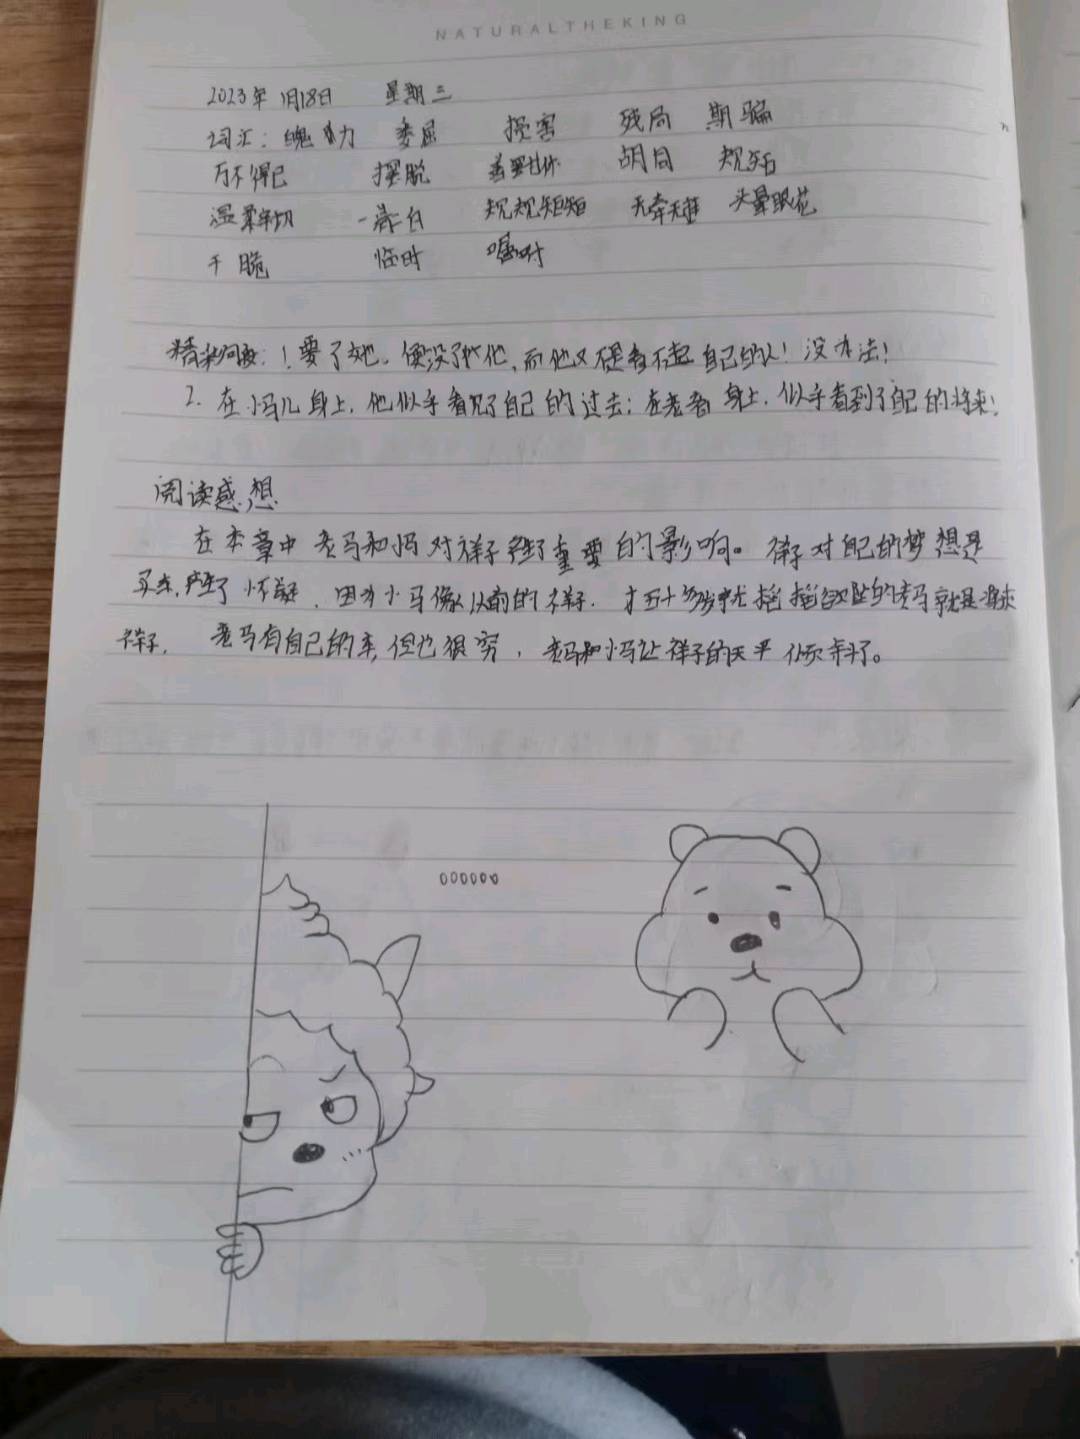 NATURALTHEKING
2023年1月18日 星期三
词汇: 魄力 委屈 损害 残局 期骗
万不得已 摆脱 胡同 规矩
温柔 一清二白 规规矩矩 无牵无挂 头晕眼花
干脆 临时 嘱咐
精采句段: 1 要了她，便没了他，而他又不是看不起自己的人！没办法！
2. 在小马儿身上，他似乎看见了自己的过去；在老者身上，似乎看到了自己的将来！
阅读感想
在本章中老马和小马对祥子产生了重要的影响。祥子对自己的梦想是
买车，产生了怀疑，因为小马像以前的祥子，才五十多岁就摇摇欲坠的老马就是将来
祥子，老马有自己的车，但也很穷，老马和小马让祥子的天平倾斜了。